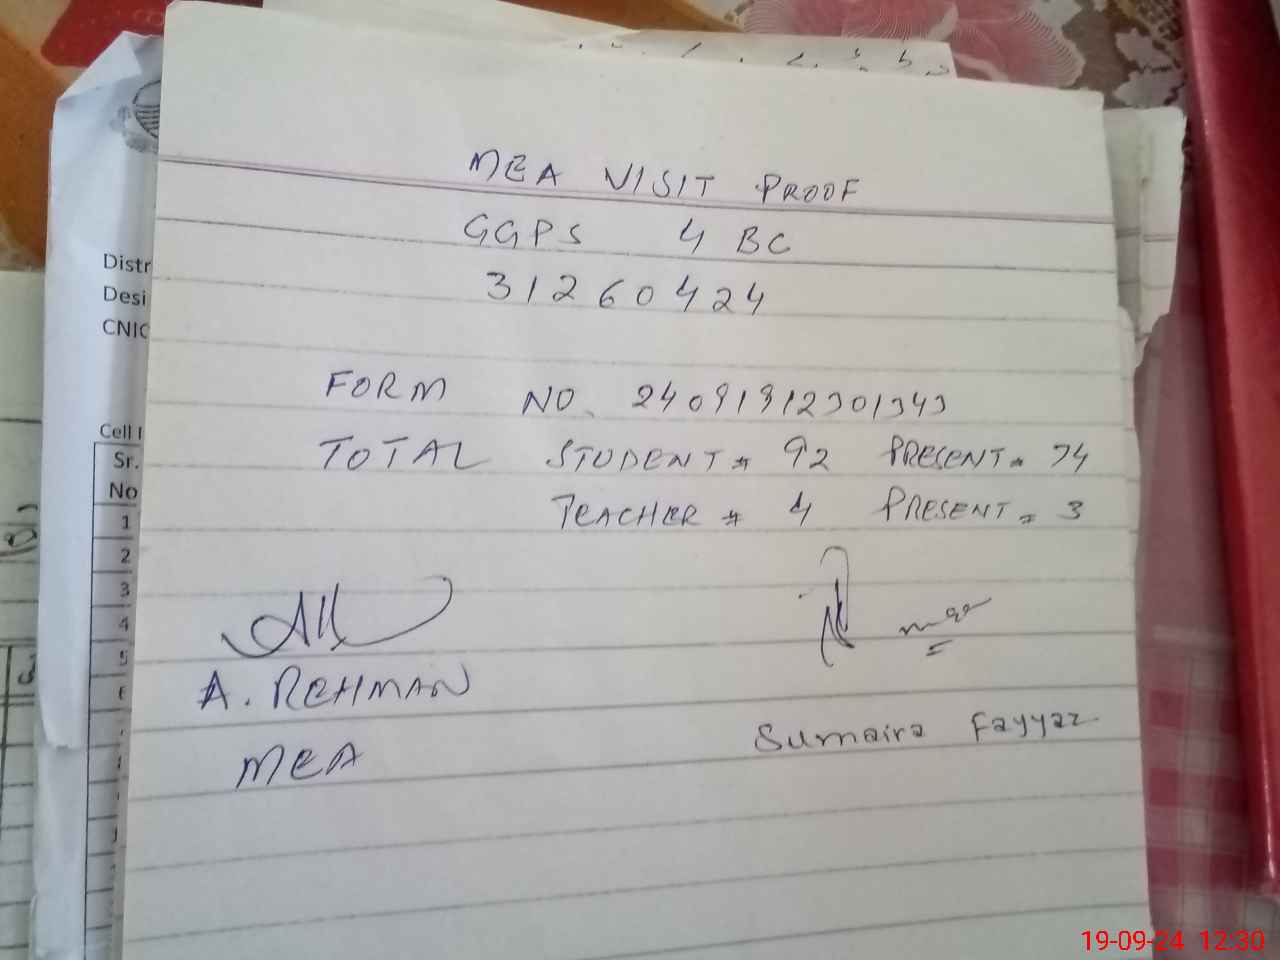 MEA VISIT PROOF
GGPS 4 BC
31260424
FORM NO. 24091912301343
TOTAL STUDENT = 92 PRESENT = 74
TEACHER = 4 PRESENT = 3
A. REHMAN
MEA
Sumaira Fayyaz
Distr
Desi
CNIC
Cell
Sr.
No
1
2
3
4
5
19-09-24 12:30